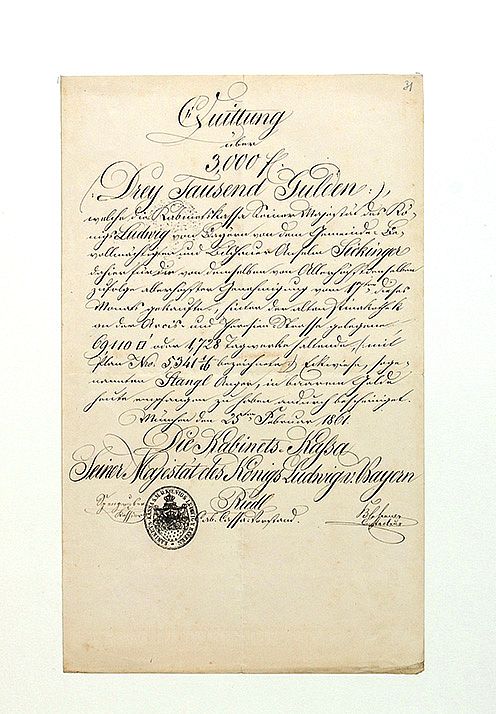 31
Quittung
über
3,000 f.
(: Drey Tausend Gulden :),
welche die Kabinetskassa Seiner Majestät des Kö-
nigs Ludwig von Bayern von dem Gemeinde Be-
vollmächtigten und Bildhauer Anselm Sickinger
dahier für die von demselben von Allerhöchstdemselben
zufolge allerhöchster Genehmigung vom 17ten dieses
Monats gekaufte, hinter der alten Pinakothek
an der Arcis- und Theresien Strasse gelegene,
69110 □' oder 1,728 Tagwerke haltende, (mit
Plan No. 5341 bezeichnete) Eckwiese, soge-
nannten Stangl Anger, in baarem Gelde
heute empfangen zu haben andurch bescheiniget.
München den 25ten Februar 1861.
Die Kabinets-Kassa
Seiner Majestät des Königs Ludwig v. Bayern
Riedl
Cab. Cassa-Vorstand.